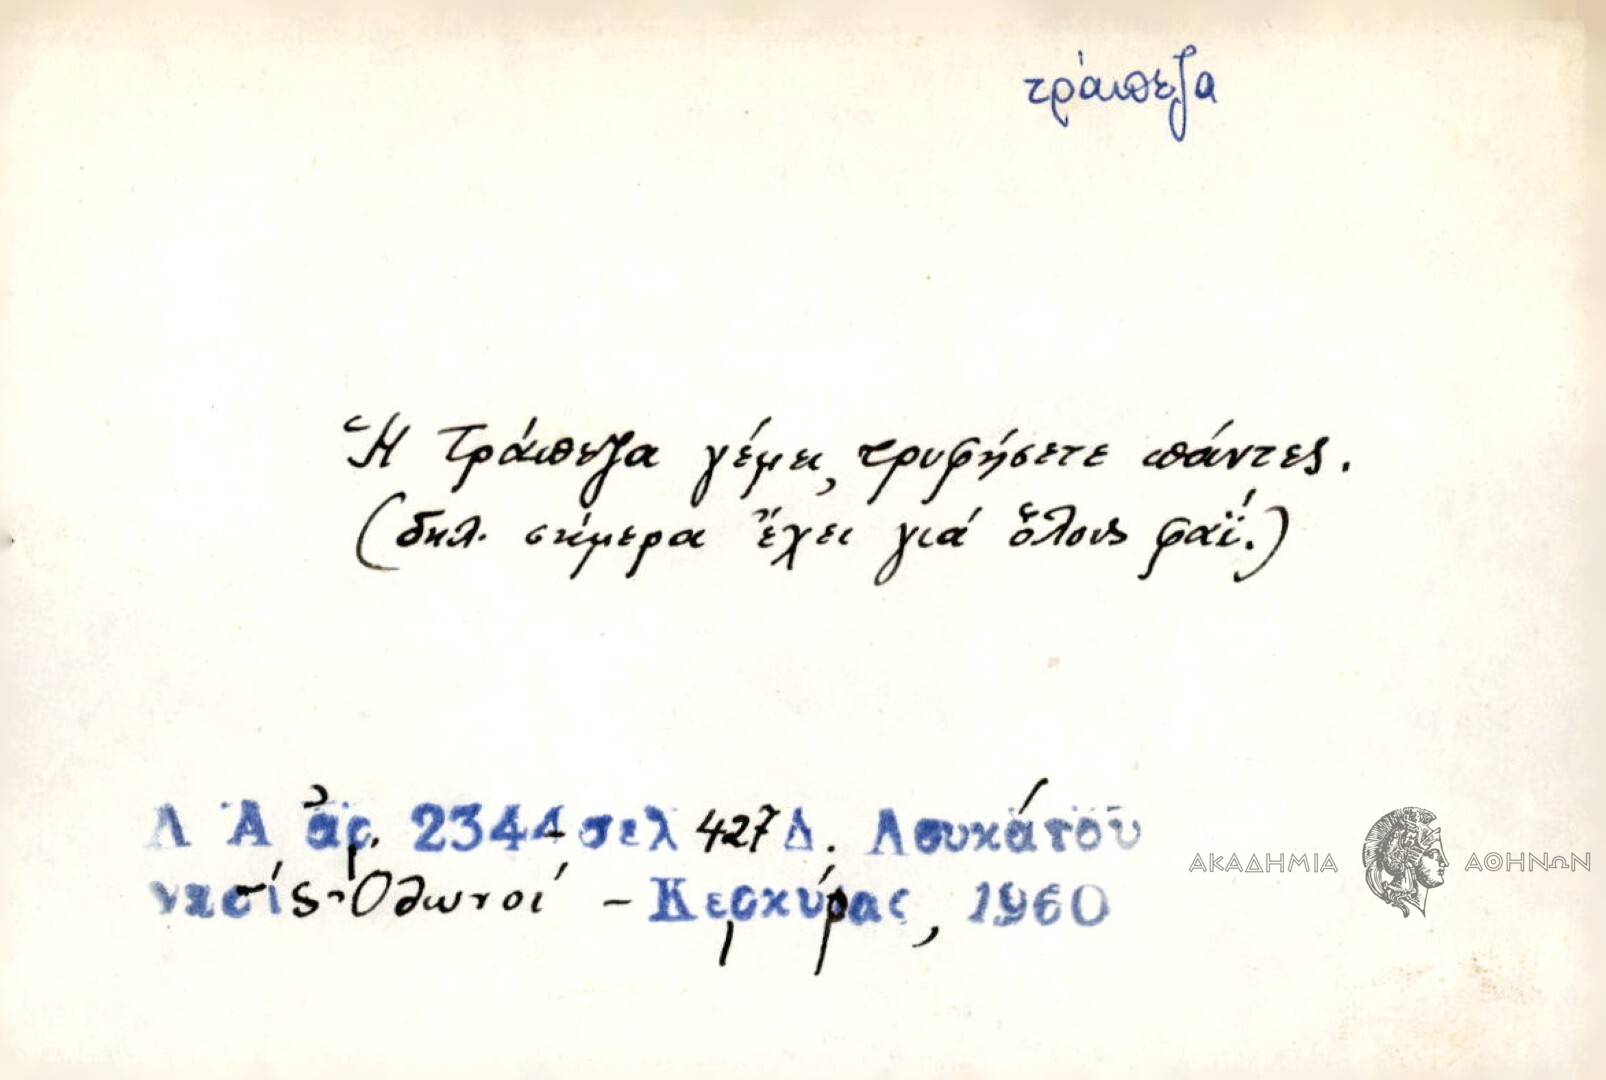 τράπεζα
Ἡ Τράπεζα γέμει, τρυφήσετε πάντες.
(δηλ. σήμερα ἔχει γιά ὅλους φαΐ.)
Λ Α ἀρ. 2344 σελ 427 Δ. Λουκάτου
νησίς Ὀθωνοί – Κερκύρας, 1960
ΑΚΑΔΗΜΙΑ ΑΘΗΝΩΝ